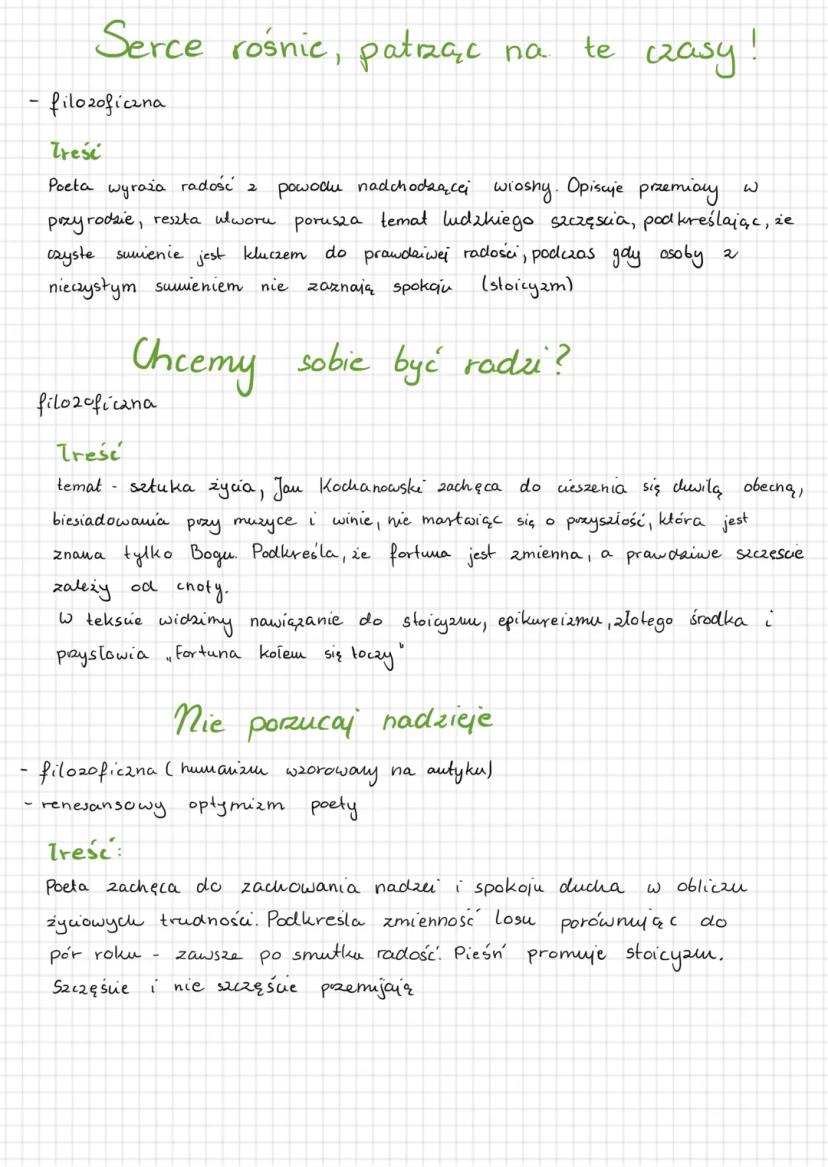 Serce rośnie, patrząc na te czasy!
- filozoficzna
Treść
Poeta wyraża radość z powodu nadchodzącej wiosny. Opisuje przemiany w
przyrodzie, reszta utworu porusza temat ludzkiego szczęścia, podkreślając, że
czyste sumienie jest kluczem do prawdziwej radości, podczas gdy osoby z
nieczystym sumieniem nie zaznają spokoju (stoicyzm)
Chcemy sobie być radzi?
filozoficzna
Treść
temat - sztuka życia, Jan Kochanowski zachęca do cieszenia się chwilą obecną,
biesiadowania przy muzyce i winie, nie martwiąc się o przyszłość, która jest
znana tylko Bogu. Podkreśla, że fortuna jest zmienna, a prawdziwe szczęście
zależy od cnoty.
W tekście widzimy nawiązanie do stoicyzmu, epikureizmu, złotego środka i
przysłowia „Fortuna kołem się toczy"
Nie porzucaj nadzieje
- filozoficzna (humanizm wzorowany na antyku)
- renesansowy optymizm poety
Treść:
Poeta zachęca do zachowania nadziei i spokoju ducha w obliczu
życiowych trudności. Podkreśla zmienność losu porównując do
pór roku - zawsze po smutku radość. Pieśń promuje stoicyzm.
Szczęście i nie szczęście przemijają